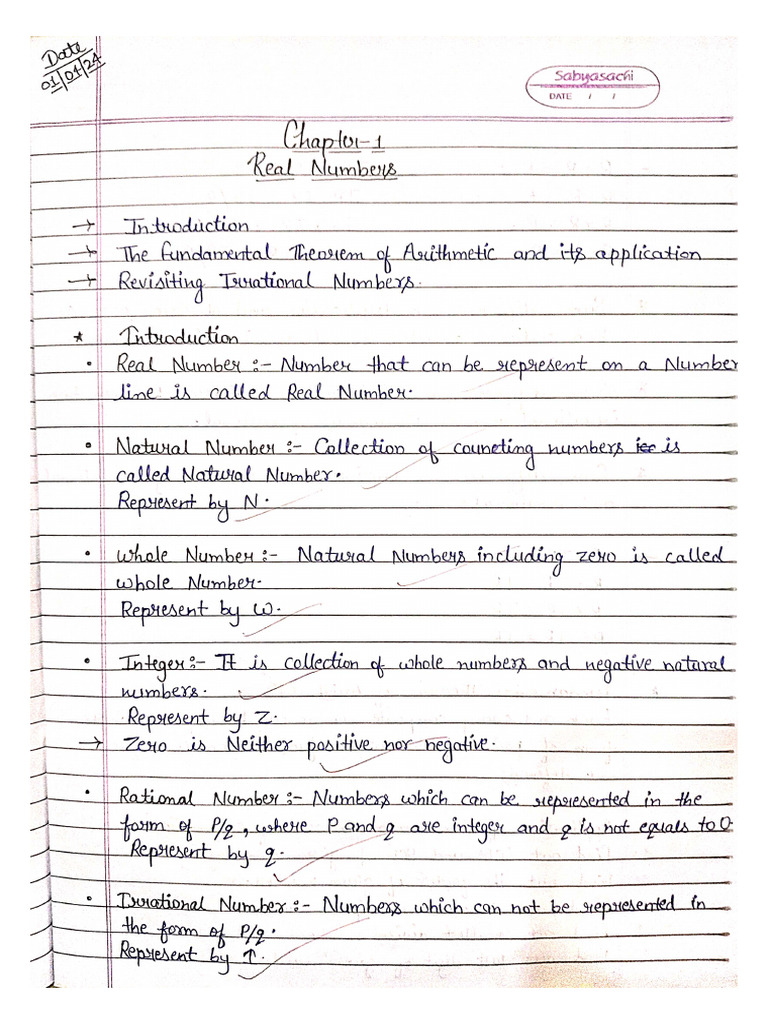 Date
01/04/24
Sabyasachi
DATE / /
Chapter-1
Real Numbers
→ Introduction
→ The fundamental Theorem of Arithmetic and its application
→ Revisiting Irrational Numbers.
* Introduction
• Real Number :- Number that can be represent on a Number
line is called Real Number.
• Natural Number :- Collection of couneting numbers is
called Natural Number.
Represent by N.
• Whole Number :- Natural Numbers including zero is called
whole Number.
Represent by W.
• Integer :- It is collection of whole numbers and negative natural
numbers.
Represent by Z.
→ Zero is Neither positive nor negative.
• Rational Number :- Numbers which can be represented in the
form of P/q, where P and q are integer and q is not equals to 0.
Represent by q.
• Irrational Number :- Numbers which can not be represented in
the form of P/q.
Represent by ↑.